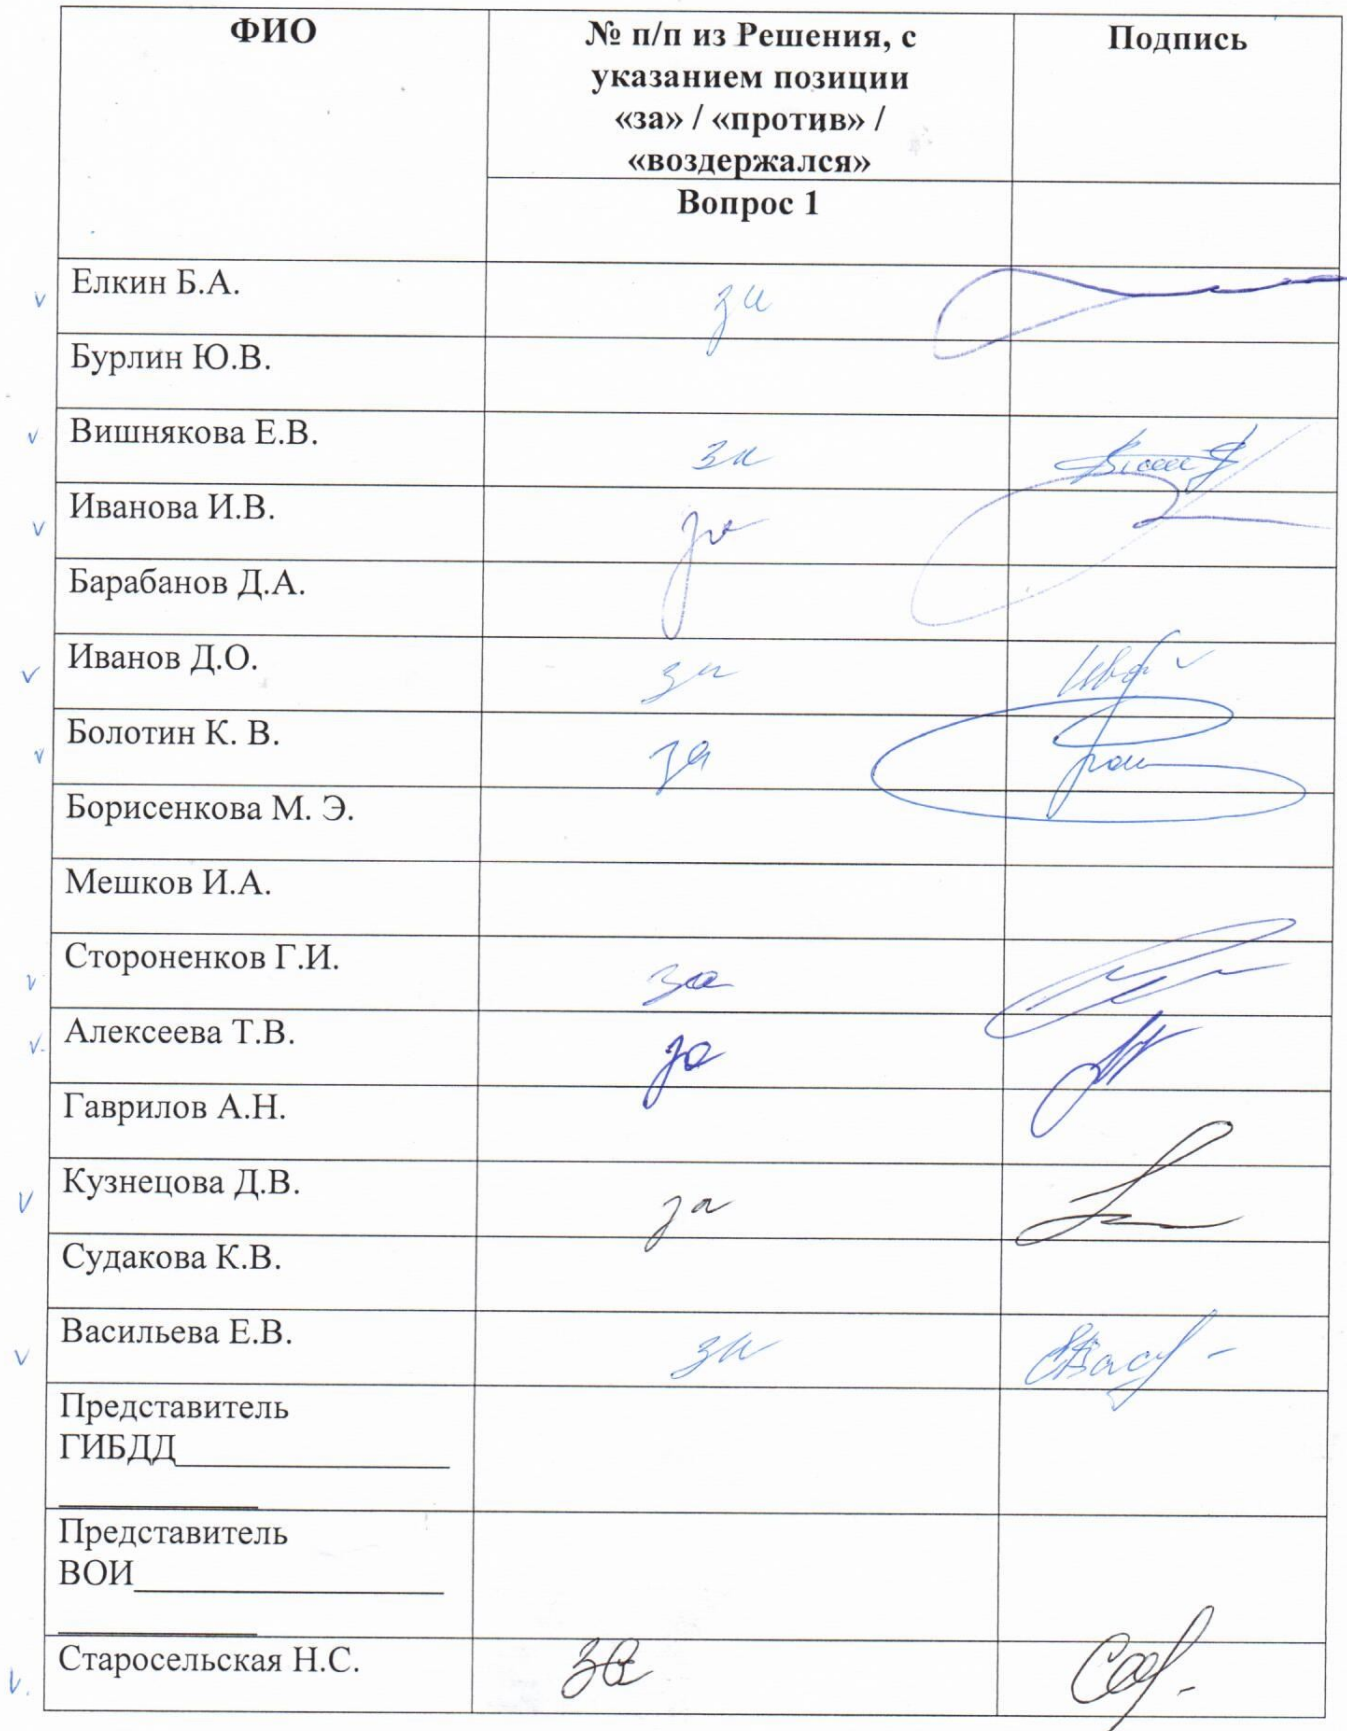 ФИО
№ п/п из Решения, с
указанием позиции
«за» / «против» /
«воздержался»
Подпись
Вопрос 1
Елкин Б.А.
за
Бурлин Ю.В.
Вишнякова Е.В.
за
Иванова И.В.
за
Барабанов Д.А.
Иванов Д.О.
за
Болотин К. В.
за
Борисенкова М. Э.
Мешков И.А.
Стороненков Г.И.
за
Алексеева Т.В.
за
Гаврилов А.Н.
Кузнецова Д.В.
за
Судакова К.В.
Васильева Е.В.
за
Представитель
ГИБДД
Представитель
ВОИ
Старосельская Н.С.
за